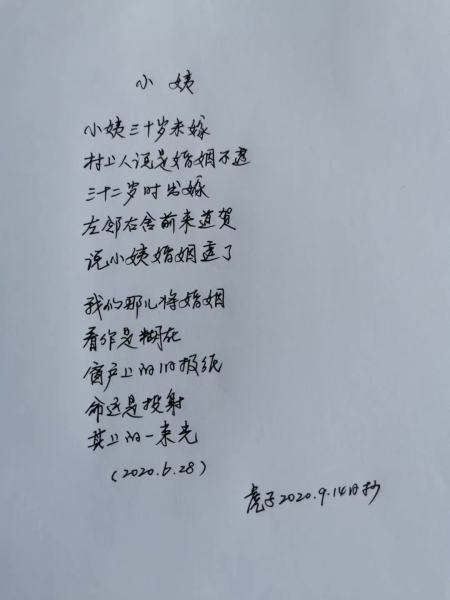 小姨
小姨三十岁未嫁
村上人说是婚姻不透
三十二岁时出嫁
左邻右舍前来道贺
说小姨婚姻透了
我们那儿将婚姻
看作是糊在
窗户上的旧报纸
命运是投射
其上的一束光
(2020.6.28)
虎子2020.9.14日抄